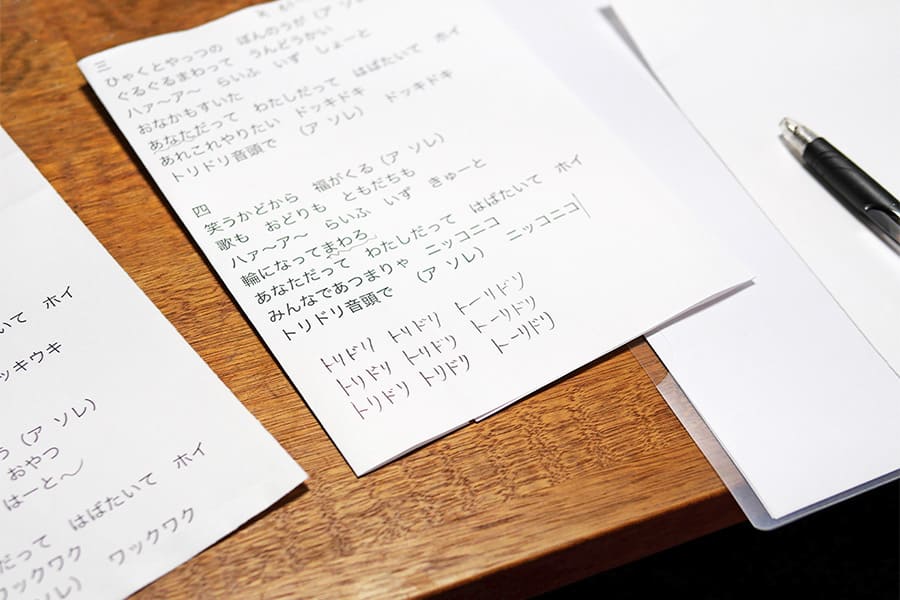 いて　ホイ
ッキウキ
う（ア ソレ）
おやつ
はーと〜
だって　はばたいて　ホイ
ワックワク　ワックワク
ソレ）
三
ひゃくとやっつの　ぼんのうが（ア ソレ）
ぐるぐるまわって　うんどうかい
ハァ〜ア〜　らいふ　いず　しょーと
おなかもすいた
あなただって　わたしだって　はばたいて　ホイ
あれこれやりたい　ドッキドキ　ドッキドキ
トリドリ音頭で　（ア ソレ）
四
笑うかどから　福がくる（ア ソレ）
歌も　おどりも　ともだちも
ハァ〜ア〜　らいふ　いず　きゅーと
輪になってまわろ
あなただって　わたしだって　はばたいて　ホイ
みんなであつまりゃ　ニッコニコ　ニッコニコ
トリドリ音頭で　（ア ソレ）
トリドリ　トリドリ　トーリドリ
トリドリ　トリドリ　トーリドリ
トリドリ　トリドリ　トーリドリ